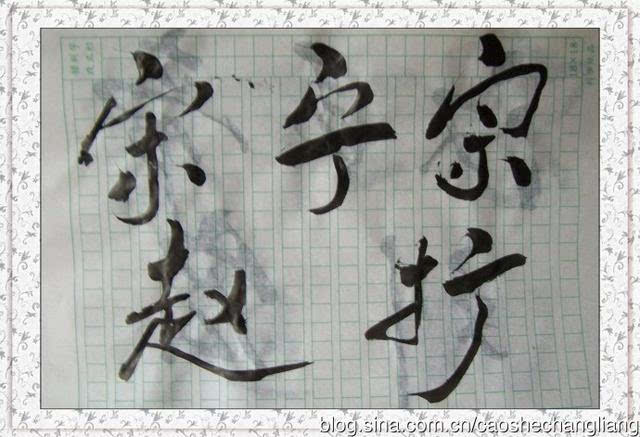 宋宁宗
赵扩
blog.sina.com.cn/caoshechangliang